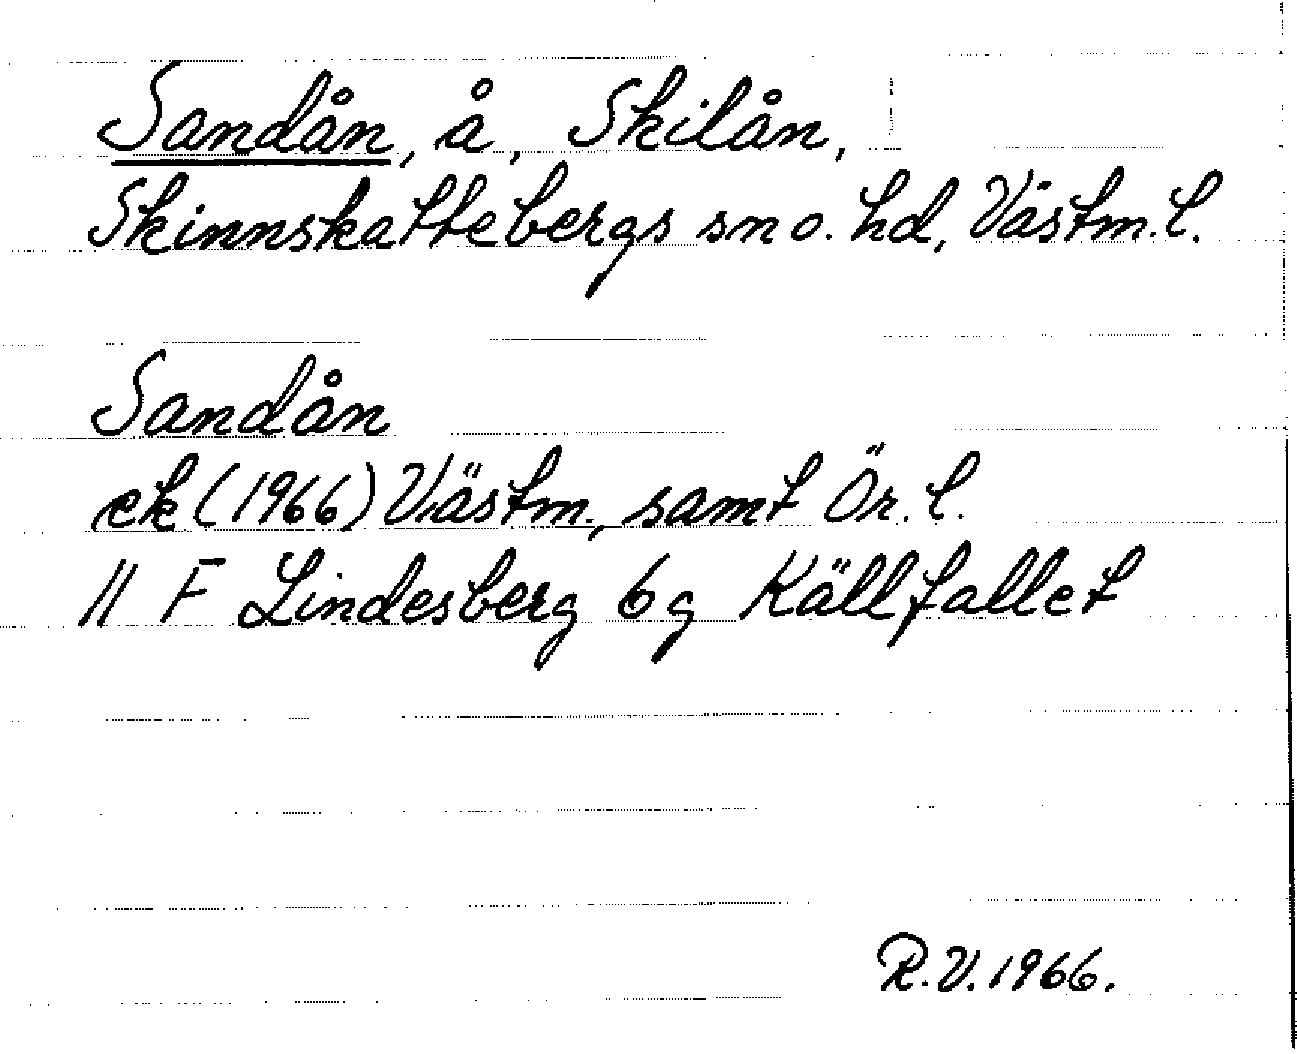 Sandån, å, Skilån,
Skinnskattebergs sn o. hd, Västm. l.
Sandån
ek (1966) Västm., samt Ör. l.
11 F Lindesberg 6g Källfallet
R.V. 1966.